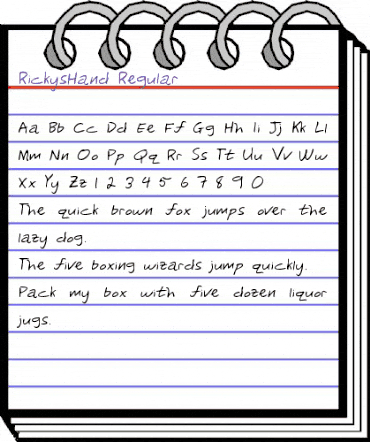 RickysHand Regular
Aa Bb Cc Dd Ee Ff Gg Hh Ii Jj Kk Ll
Mm Nn Oo Pp Qq Rr Ss Tt Uu Vv Ww
Xx Yy Zz 1 2 3 4 5 6 7 8 9 0
The quick brown fox jumps over the
lazy dog.
The five boxing wizards jump quickly.
Pack my box with five dozen liquor
jugs.